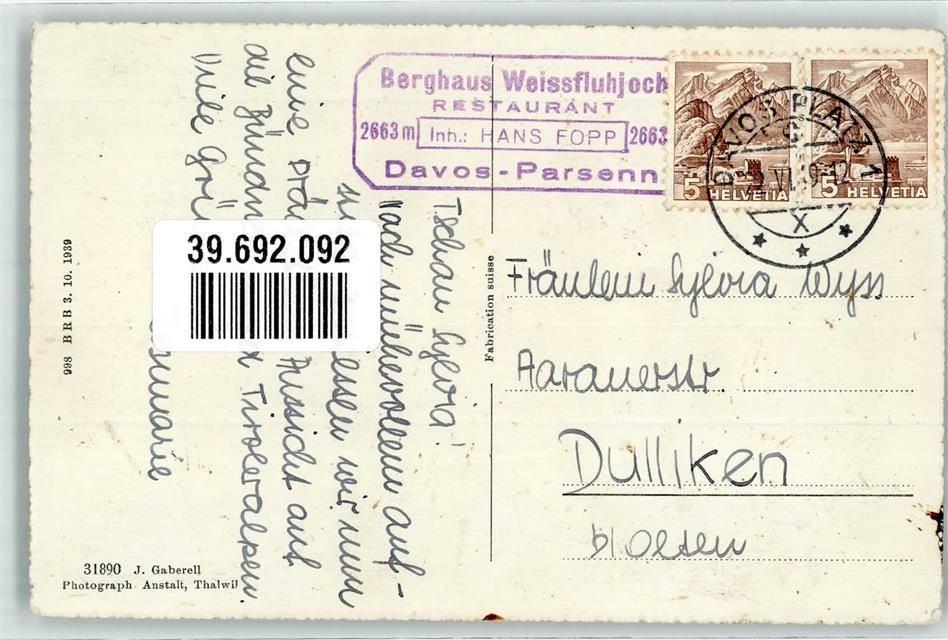 Berghaus Weissfluhjoch
RESTAURANT
2663m Inh.: HANS FOPP 2663
Davos-Parsenn
5 HELVETIA
5 HELVETIA
DAVOS PLATZ 1
VI
X
39.692.092
Tschau Sylvia!
Nach mühevollem auf-
essen wir nun
eine
Aussicht auf
die Bündn
Tiroleralpen.
Viele Grü
Fräulein Sylvia Wyss
Aarauerstr.
Dulliken
b/Olten
Fabrication suisse
998 BRB 3. 10. 1939
31890 J. Gaberell
Photograph. Anstalt, Thalwil